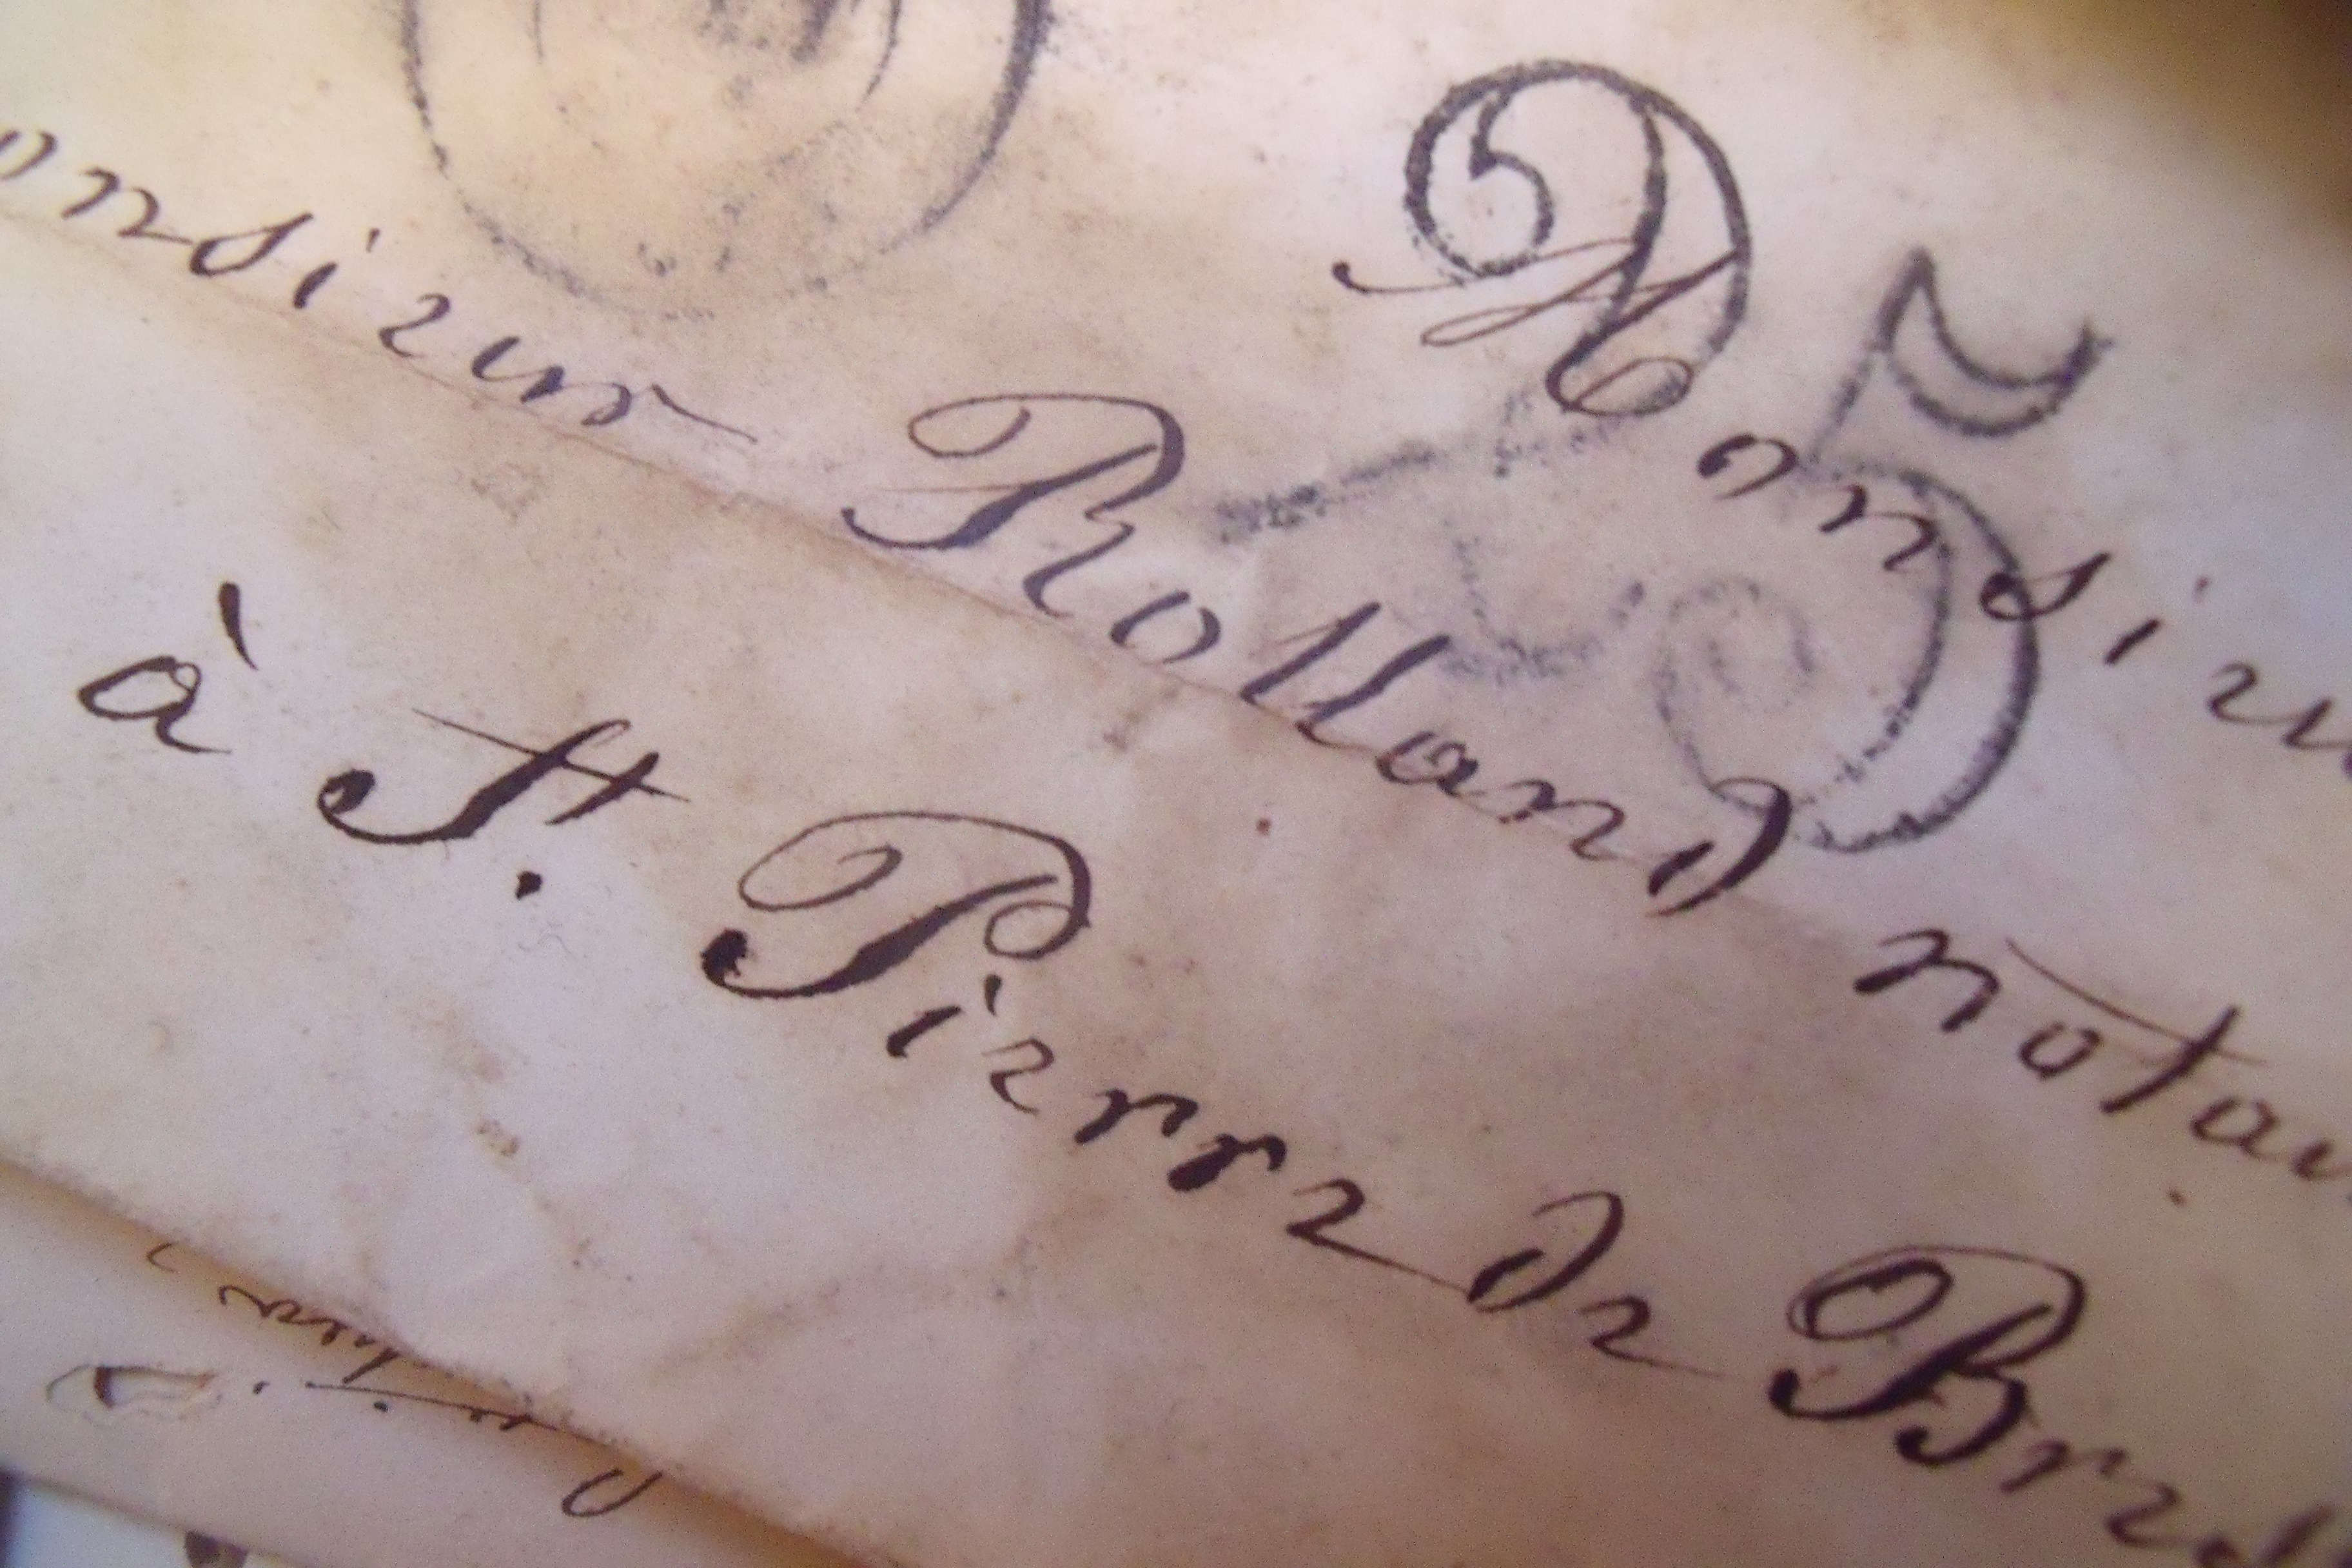 25
Monsieu
onsieur Rolland notai
à St. Pierre de Bres